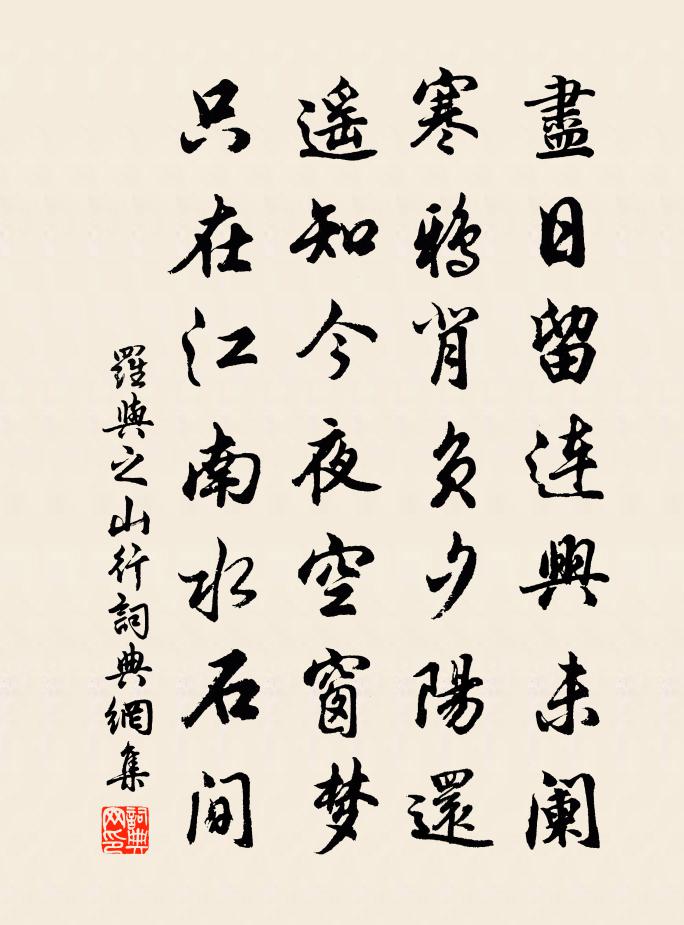 盡日留連興未闌
寒鴉背負夕陽還
遥知今夜空窗梦
只在江南水石间
羅與之山行詞典網集
詞典网印